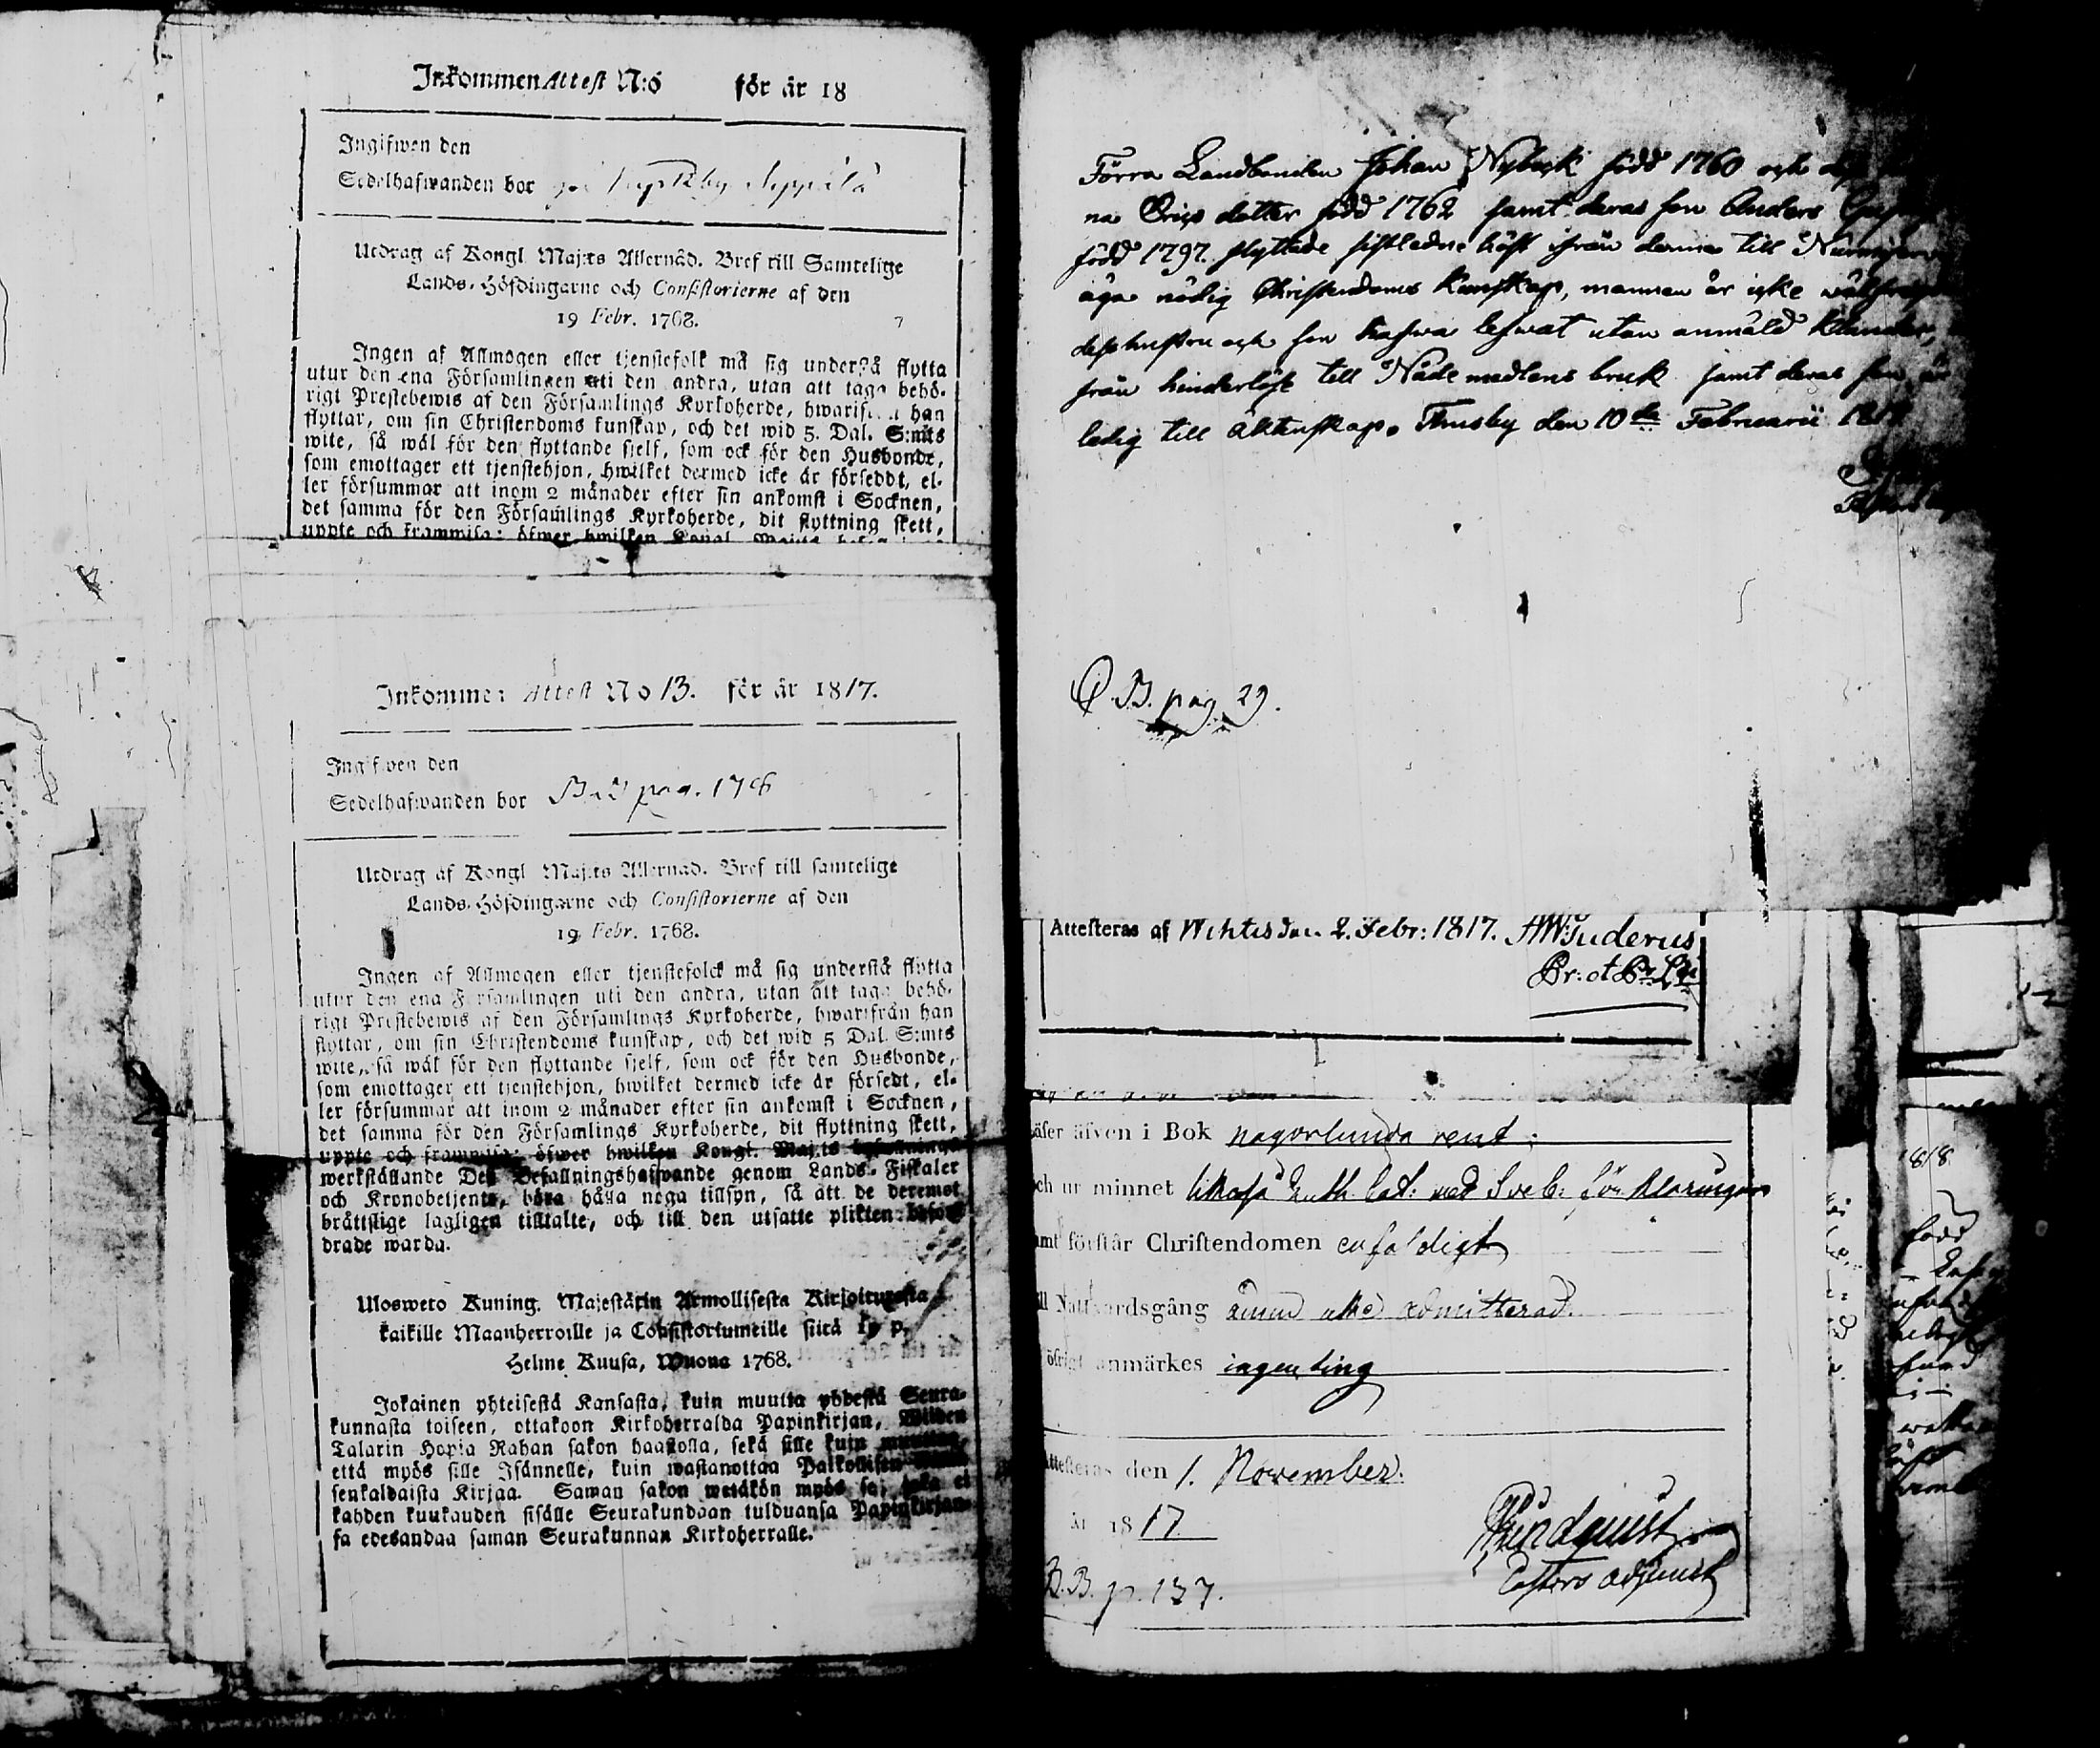 Inkommen Attest N:6 för år 18
Ingifwen den
Sedelhafwanden bor
Utdrag af Kongl Maj:ts Allernåd. Bref till Samtelige
Lands-Höfdingarne och Consistorierne af den
19 Febr. 1768.
Ingen af Allmogen eller tjenstefolk må sig understå flytta
utur den ena Församlingen uti den andra, utan att taga behö-
rigt Prestebewis af den Församlings Kyrkoherde, hwarifrån han
flyttar, om sin Christendoms kunskap, och det wid 5. Dal. S:mts
wite, så wäl för den flyttande sjelf, som ock för den Husbonde,
som emottager ett tjenstehjon, hwilket dermed icke är förseddt, el-
ler försummar att inom 2 månader efter sin ankomst i Socknen,
det samma för den Församlings Kyrkoherde, dit flyttning skett,
uppte och frammisa; öfwer hwilken Kongl. Maj:ts
Inkommen Attest No 13. för år 1817.
Ingifwen den
Sedelhafwanden bor pag. 178
Utdrag af Kongl Maj:ts Allernåd. Bref till samtelige
Lands-Höfdingarne och Consistorierne af den
19 Febr. 1768.
Ingen af Allmogen eller tjenstefolck må sig understå flytta
utur den ena Församlingen uti den andra, utan att taga behö-
rigt Prestebewis af den Församlings Kyrkoherde, hwarifrån han
flyttar, om sin Christendoms kunskap, och det wid 5 Dal. S:mts
wite, så wäl för den flyttande sjelf, som ock för den Husbonde,
som emottager ett tjenstehjon, hwilket dermed icke är försedt, el-
ler försummar att inom 2 månader efter sin ankomst i Socknen,
det samma för den Församlings Kyrkoherde, dit flyttning skett,
uppte och frammisa; öfwer hwilken Kongl. Maj:ts
werkställande Dess Befallningshafwande genom Lands-Fiskaler
och Kronobetjente, böra hålla noga tillsyn, så att de deremot
bråttslige lagligen tilltalte, och till den utsatte plikten befor-
drade warda.
Ulosweto Kuning. Majestätin Armollisesta Kirjoituxesta
kaikille Maanherroille ja Consistoriumeille siitä 19 p.
Helme Kuusa, Wuona 1768.
Jokainen yhteisestä Kansasta, kuin muutta yhdestä Seura-
kunnasta toiseen, ottakoon Kirkoherralda Papinkirjan, Wiiden
Talarin Hopia Rahan sakon haastolla, sekä sille kuin
että myös sille Isännelle, kuin wastanottaa Palkollisen
senkaldaista Kirjaa. Saman sakon wetäkön myös se, joka ei
kahden kuukauden sisälle Seurakundaan tulduansa Papinkirjan-
sa edesandaa saman Seurakunnan Kirkoherralle.
Förra Landbonden Johan Nybeck född 1760 och
na Erics dotter född 1762 samt deras son Anders
född 1797. flyttade sistledne höst ifrån denna till
äga nödig Christendoms kunskap, mannen är icke
och son hafwa lefwat utan anmäld klander,
från hinderlöst till Nådemedlens bruk samt deras son är
ledig till äktenskap. Thusby den 10de Februarii
B. pag. 29.
Attesteras af Wihtis den 2. Febr: 1817.
äser äfven i Bok någorlunda rent;
ch ur minnet likaså Luth. Cat: med Sveb: förklaringar
amt förstår Christendomen enfaldigt
ll Nattvardsgång ännu icke admitterad.
öfrigt anmärkes ingenting
Attesteras den 1. November.
år 1817
Lindquist
Pastors adjunct
B.B. p. 137.